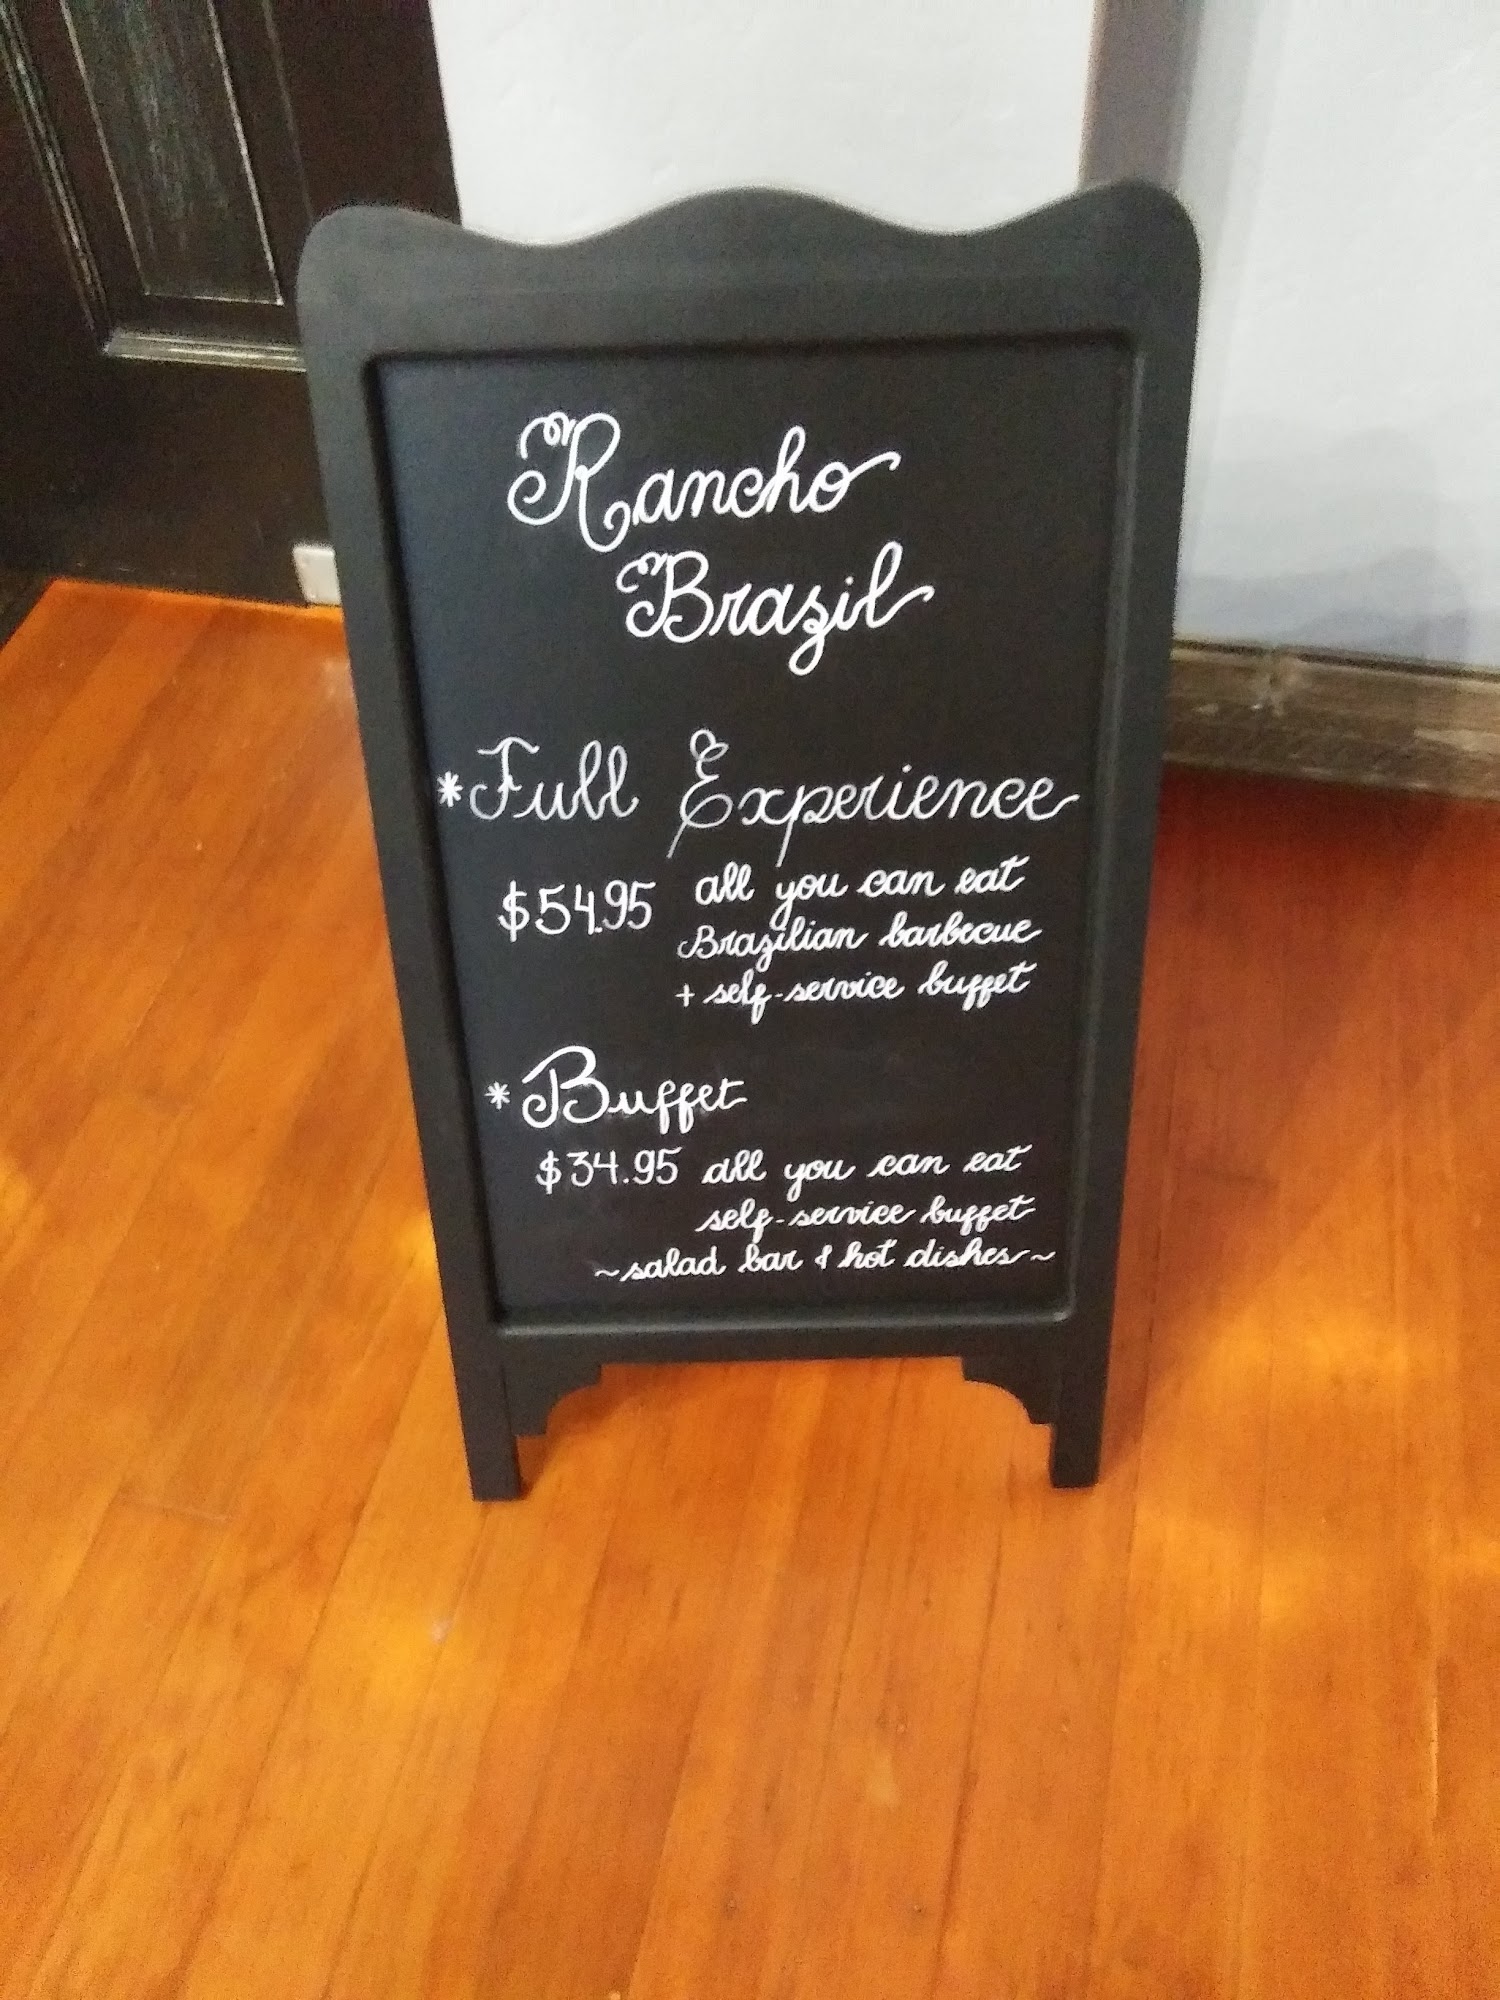 Rancho
Brazil
*Full Experience
$54.95 all you can eat
Brazilian barbecue
+ self-service buffet
*Buffet
$34.95 all you can eat
self-service buffet
~salad bar & hot dishes~